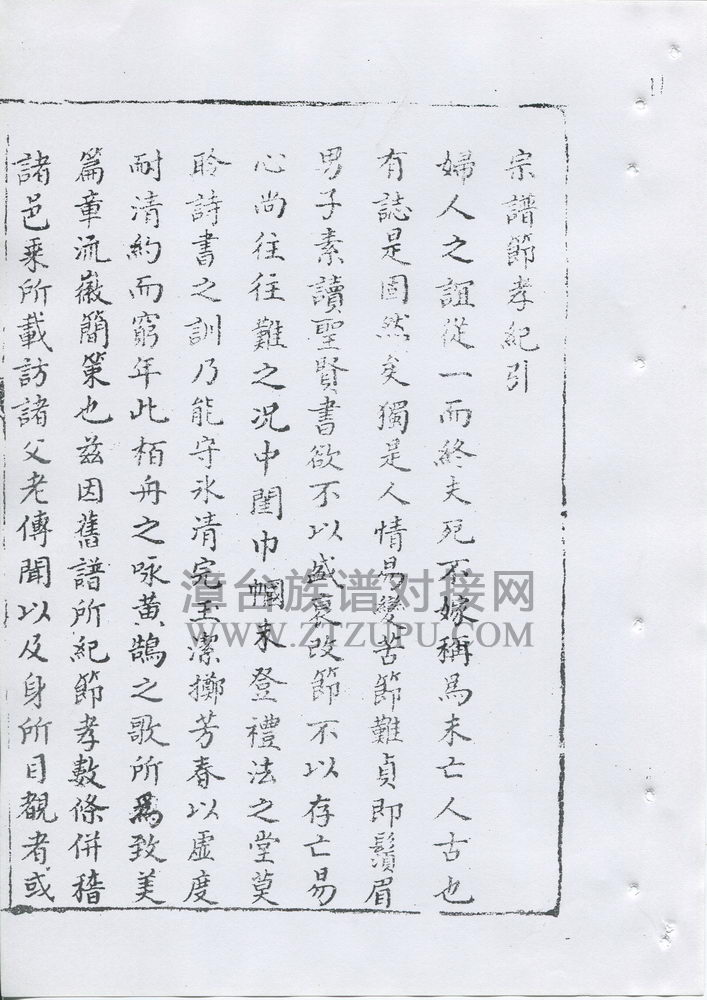 宗譜節孝紀引
婦人之誼從一而終夫死不嫁稱爲未亡人古也
有誌是固然矣獨是人情易變苦節難貞即鬚眉
男子素讀聖賢書欲不以盛衰改節不以存亡易
心尚往往難之况中閨巾幗未登禮法之堂莫
聆詩書之訓乃能守氷清完玉潔擲芳春以虛度
耐清約而窮年此栢舟之咏黃鵠之歌所爲致美
篇章流徽簡策也兹因舊譜所紀節孝數條併稽
諸邑乘所載訪諸父老傳聞以及身所目覩者或
漳台族谱对接网
WWW.ZTZUPU.COM